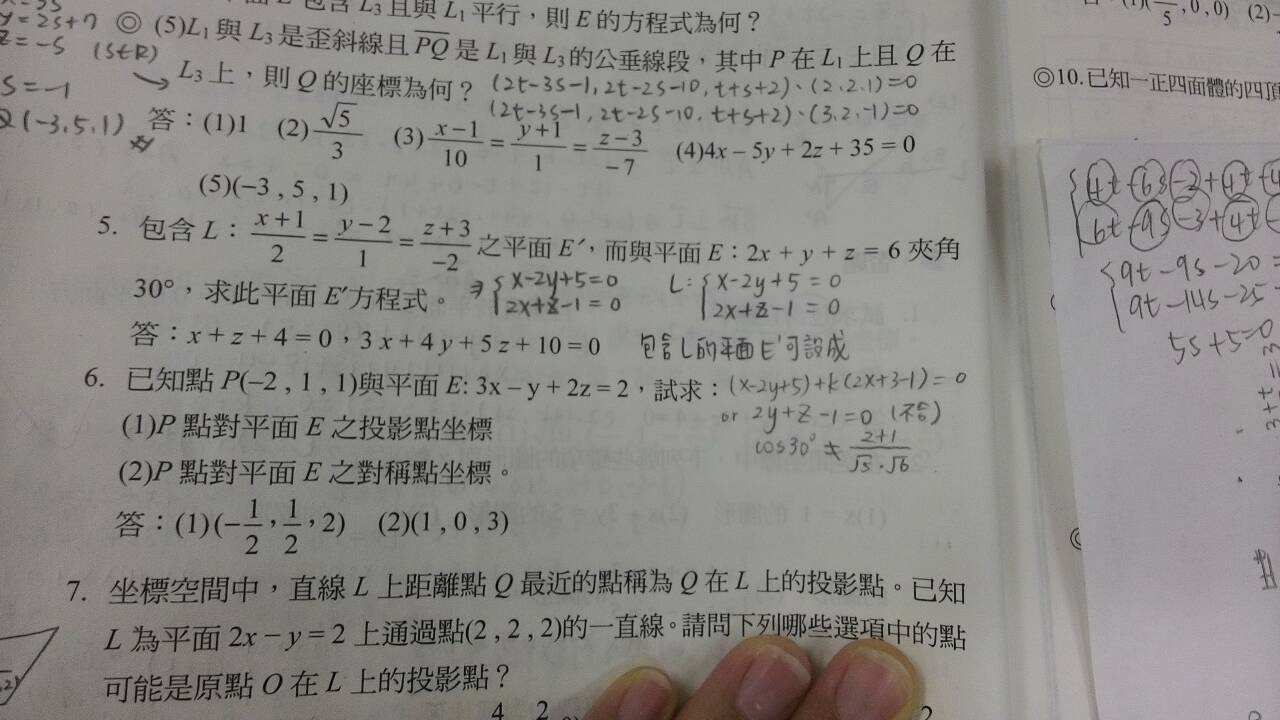 包含 L₃ 且與 L₁ 平行，則 E 的方程式為何？
y=2s+7 ◎ (5)L₁ 與 L₃ 是歪斜線且 PQ 是 L₁ 與 L₃ 的公垂線段，其中 P 在 L₁ 上且 Q 在
z=-s (s∈R)
L₃ 上，則 Q 的座標為何？ (2t-3s-1, 2t-2s-10, t+s+2)·(2,2,1)=0
s=-1
(2t-3s-1, 2t-2s-10, t+s+2)·(3,2,-1)=0
Q(-3,5,1)
答：(1)1 (2)√5/3 (3)(x-1)/10=(y+1)/1=(z-3)/-7 (4)4x-5y+2z+35=0
(5)(-3,5,1)
5. 包含 L：(x+1)/2=(y-2)/1=(z+3)/-2 之平面 E′，而與平面 E：2x+y+z=6 夾角
30°，求此平面 E′方程式。 ⇒ {x-2y+5=0 L: {x-2y+5=0
2x+z-1=0 2x+z-1=0
答：x+z+4=0，3x+4y+5z+10=0 包含L的平面E'可設成
6. 已知點 P(-2,1,1)與平面 E: 3x-y+2z=2，試求： (x-2y+5)+k(2x+3-1)=0
or 2y+z-1=0 (不合)
(1)P 點對平面 E 之投影點坐標
cos30° ≠ (2+1)/(√5·√6)
(2)P 點對平面 E 之對稱點坐標。
答：(1)(-1/2,1/2,2) (2)(1,0,3)
7. 坐標空間中，直線 L 上距離點 Q 最近的點稱為 Q 在 L 上的投影點。已知
L 為平面 2x-y=2 上通過點(2,2,2)的一直線。請問下列哪些選項中的點
可能是原點 O 在 L 上的投影點？
◎10. 已知一正四面體的四頂
4t+6s-2+4t+4
6t-9s-3+4t
{9t-9s-20=
9t-14s-25=
5s+5=0